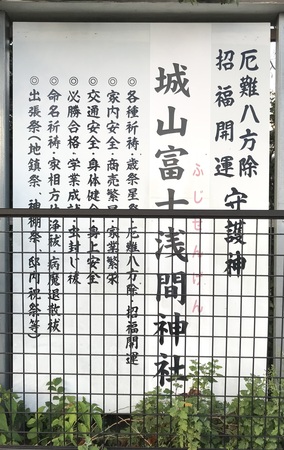 厄難八方除
招福開運
守護神
城山富士浅間神社
ふじせんげん
◎各種祈祷・歳祭星祭・厄難八方除・招福開運
◎家内安全・商売繁栄・家業繁栄
◎交通安全・身体健全・身上安全
◎必勝合格・学業成就・虫封じ秡
◎命名祈祷・家相方位浄秡・病魔退散秡
◎出張祭(地鎮祭・神棚祭・邸内祝祭等)